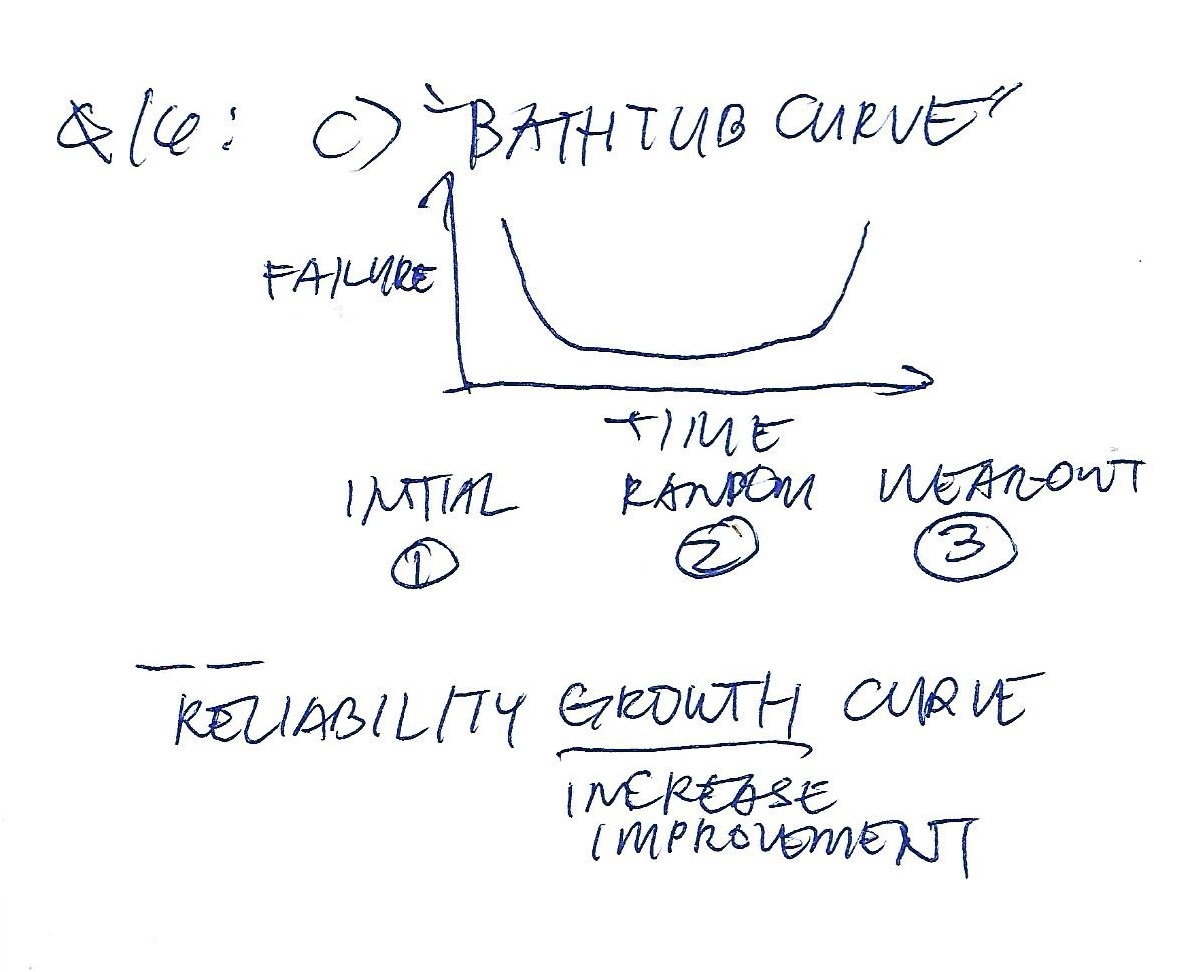 Q16: C) "BATHTUB CURVE"
FAILURE
TIME
INITIAL RANDOM WEAR-OUT
1 2 3
RELIABILITY GROWTH CURVE
INCREASE
IMPROVEMENT